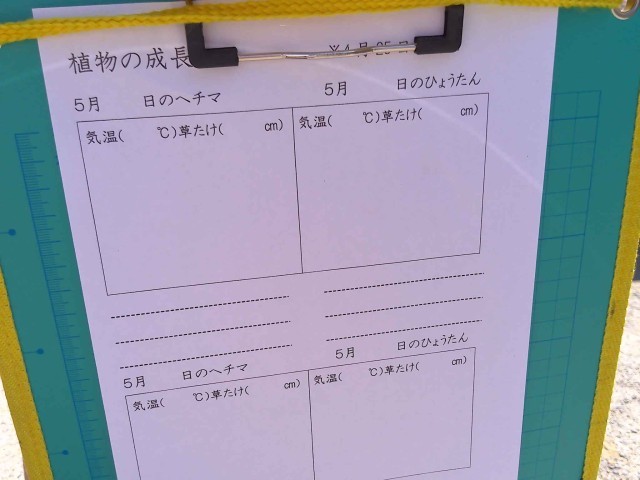 植物の成長 ※4月25日
5月 日のヘチマ 5月 日のひょうたん
気温( ℃)草たけ( cm) 気温( ℃)草たけ( cm)
5月 日のヘチマ 5月 日のひょうたん
気温( ℃)草たけ( cm) 気温( ℃)草たけ( cm)